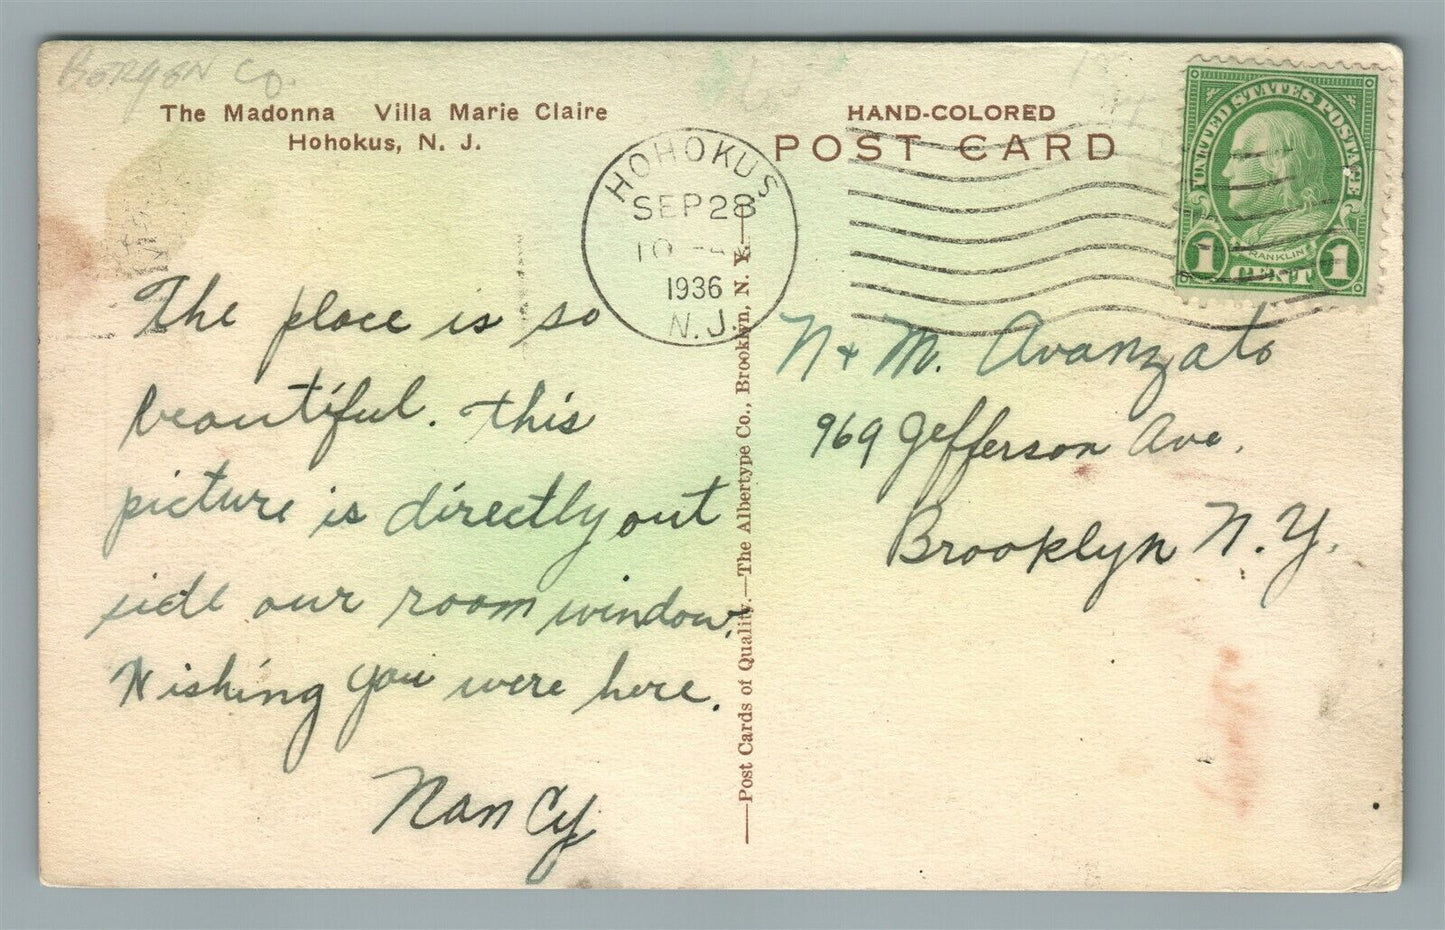 Bergen Co.
The Madonna Villa Marie Claire
Hohokus, N. J.
HAND-COLORED
POST CARD
HOHOKUS
SEP 28
10
1936
N.J.
UNITED STATES POSTAGE
FRANKLIN
1 CENT 1
The place is so
beautiful. This
picture is directly out
side our room window.
Wishing you were here.
Nancy
—Post Cards of Quality.—The Albertype Co., Brooklyn, N. Y.—
N + M. Avanzato
969 Jefferson Ave.
Brooklyn N.Y.